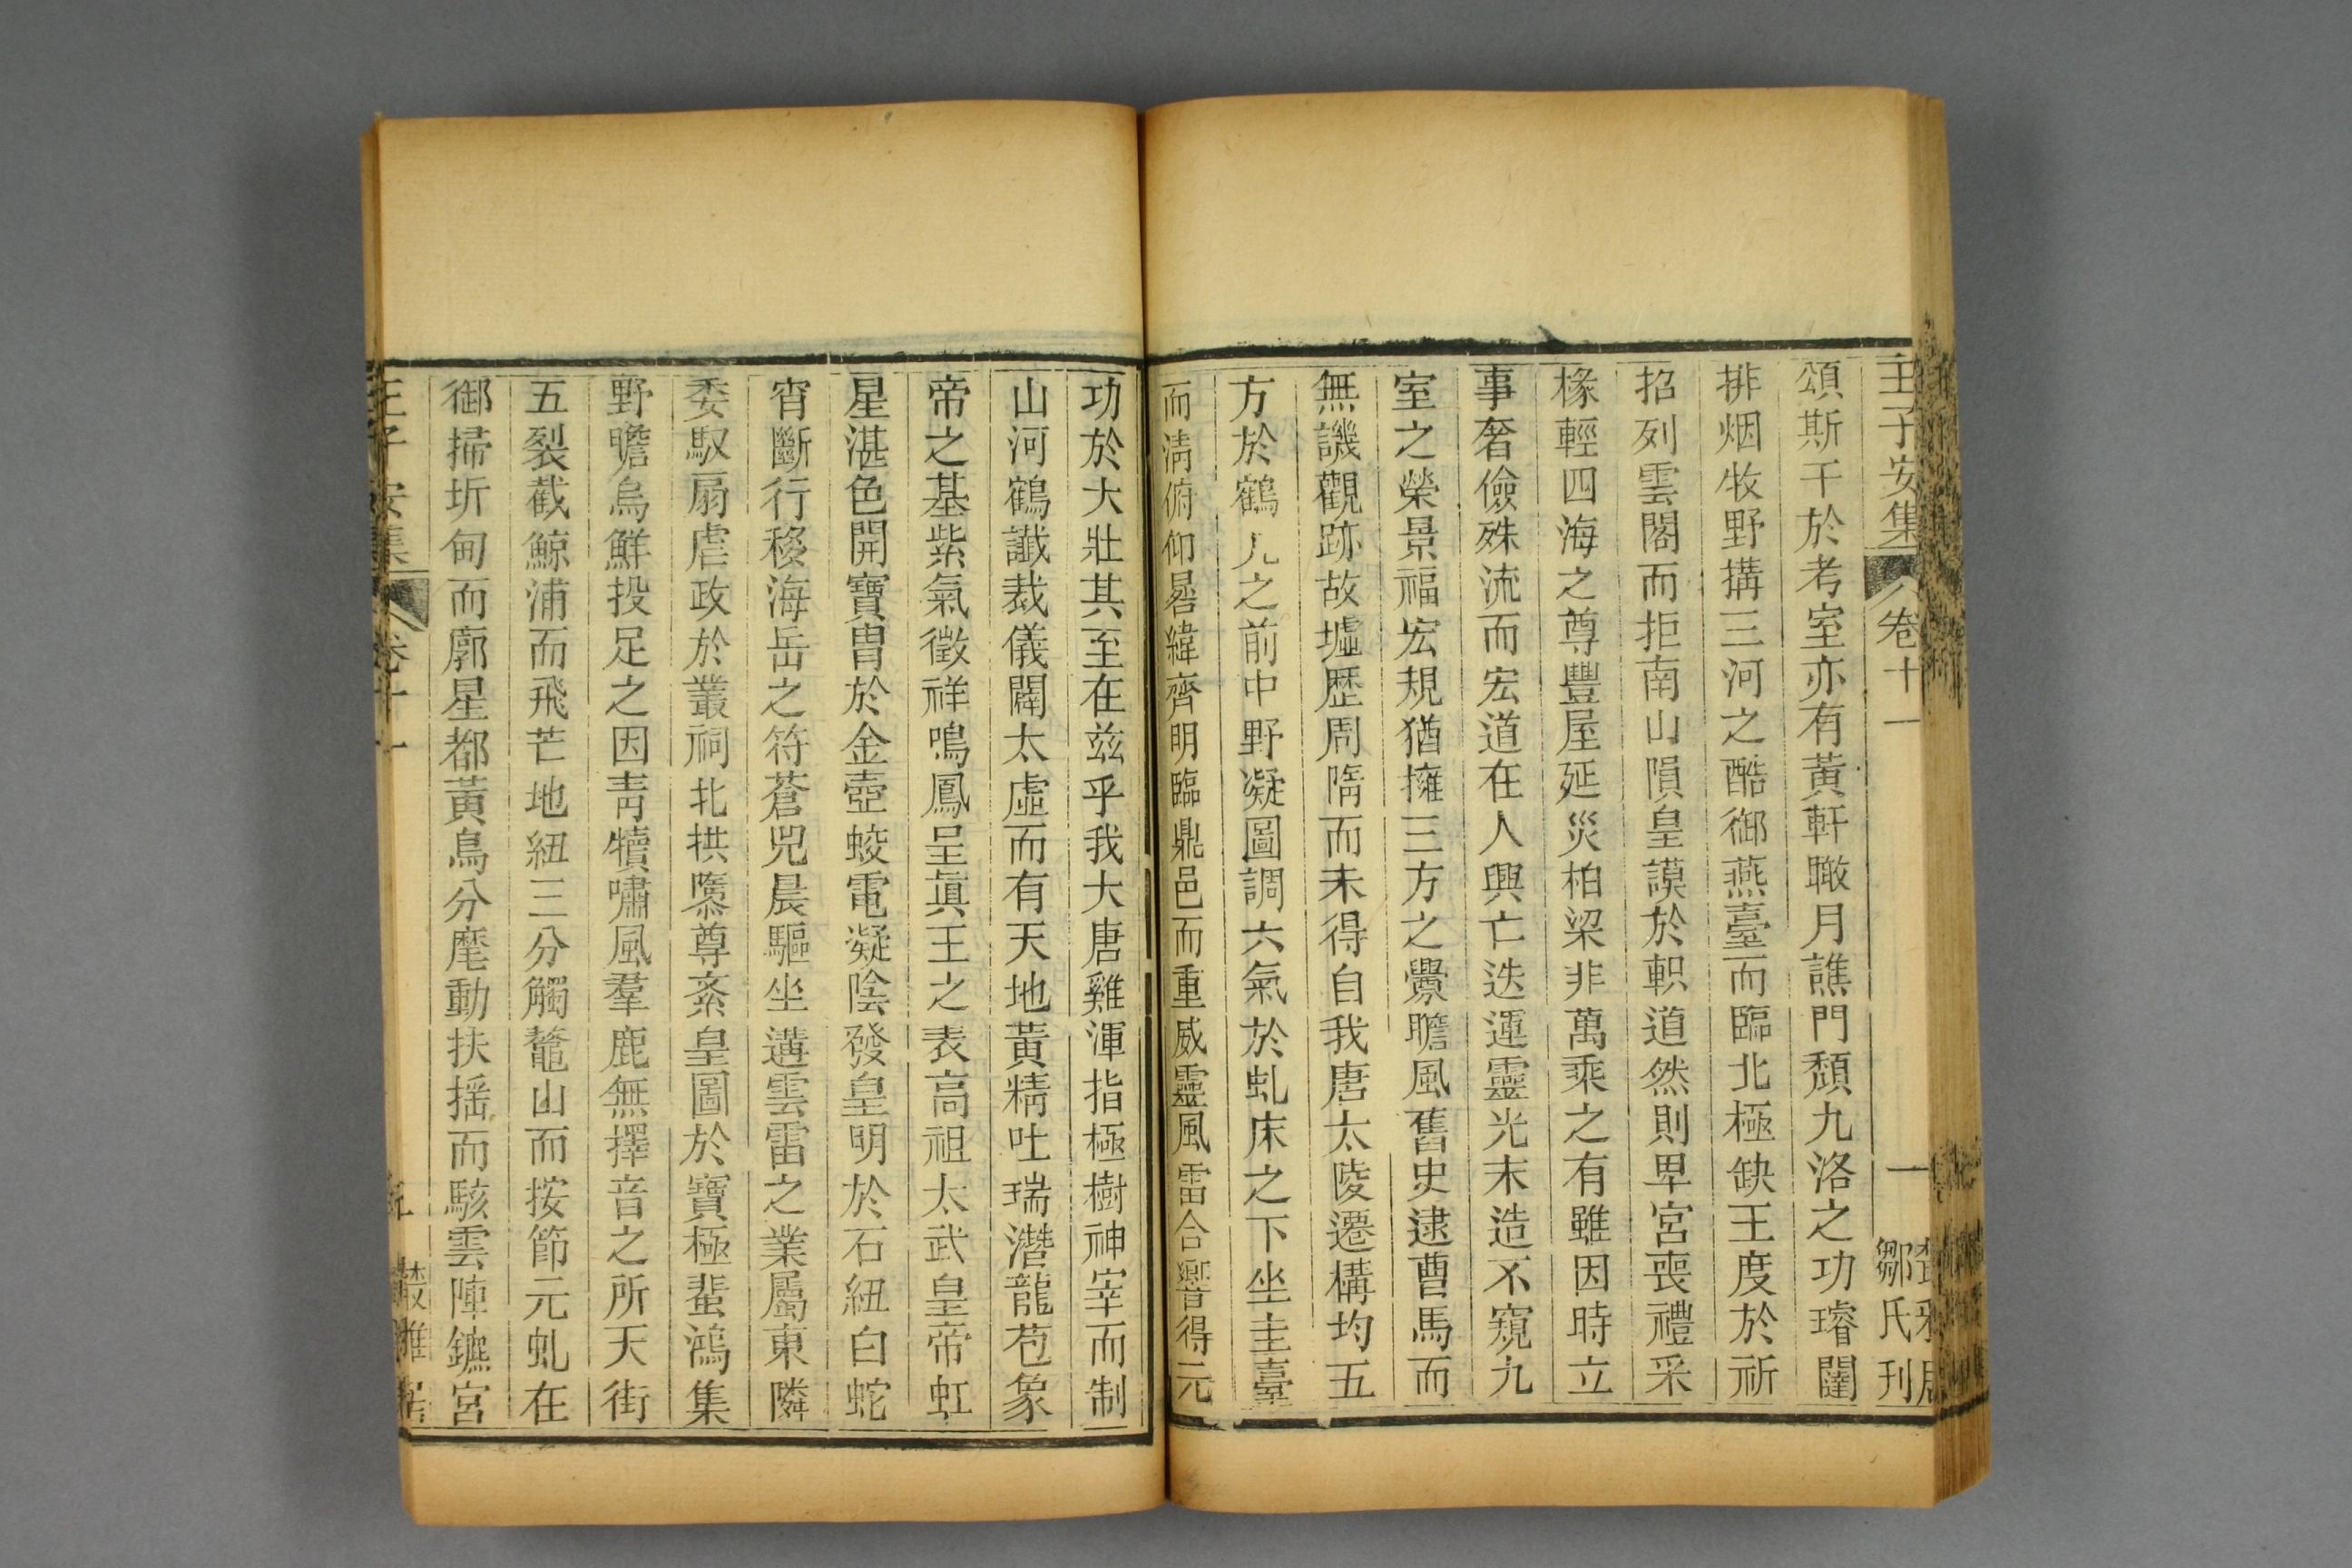 王子安集 卷十一 一 鄒氏刊
頌斯干於考室亦有黃軒瞰月譙門頹九洛之功璿闥
排烟牧野搆三河之酷御燕臺而臨北極缺王度於祈
招列雲閣而拒南山隕皇謨於軹道然則卑宮喪禮采
椽輕四海之尊豐屋延災柏梁非萬乘之有雖因時立
事奢儉殊流而宏道在人興亡迭運靈光末造不窺九
室之榮景福宏規猶擁三方之釁瞻風舊史逮曹馬而
無譏觀跡故墟歷周隋而未得自我唐太陵遷構均五
方於鶴几之前中野凝圖調六氣於虬床之下坐圭臺
而淸俯仰晷緯齊明臨鼎邑而重威靈風雷合響得元
功於大壯其至在茲乎我大唐雞渾指極樹神宰而制
山河鶴讖裁儀闢太虛而有天地黃精吐瑞潛龍苞象
帝之基紫氣徵祥鳴鳳呈眞王之表高祖太武皇帝虹
星湛色開寶冑於金壺蛟電凝陰發皇明於石紐白蛇
宵斷行移海岳之符蒼兕晨驅坐遘雲雷之業屬東隣
委馭扇虐政於叢祠北拱隳尊紊皇圖於寶極蜚鴻集
野瞻烏鮮投足之因靑犢嘯風羣鹿無擇音之所天街
五裂截鯨浦而飛芒地紐三分觸鼇山而按節元虬在
御掃圻甸而廓星都黃鳥分麾動扶搖而駭雲陣鑣宮
王子安集 卷十一